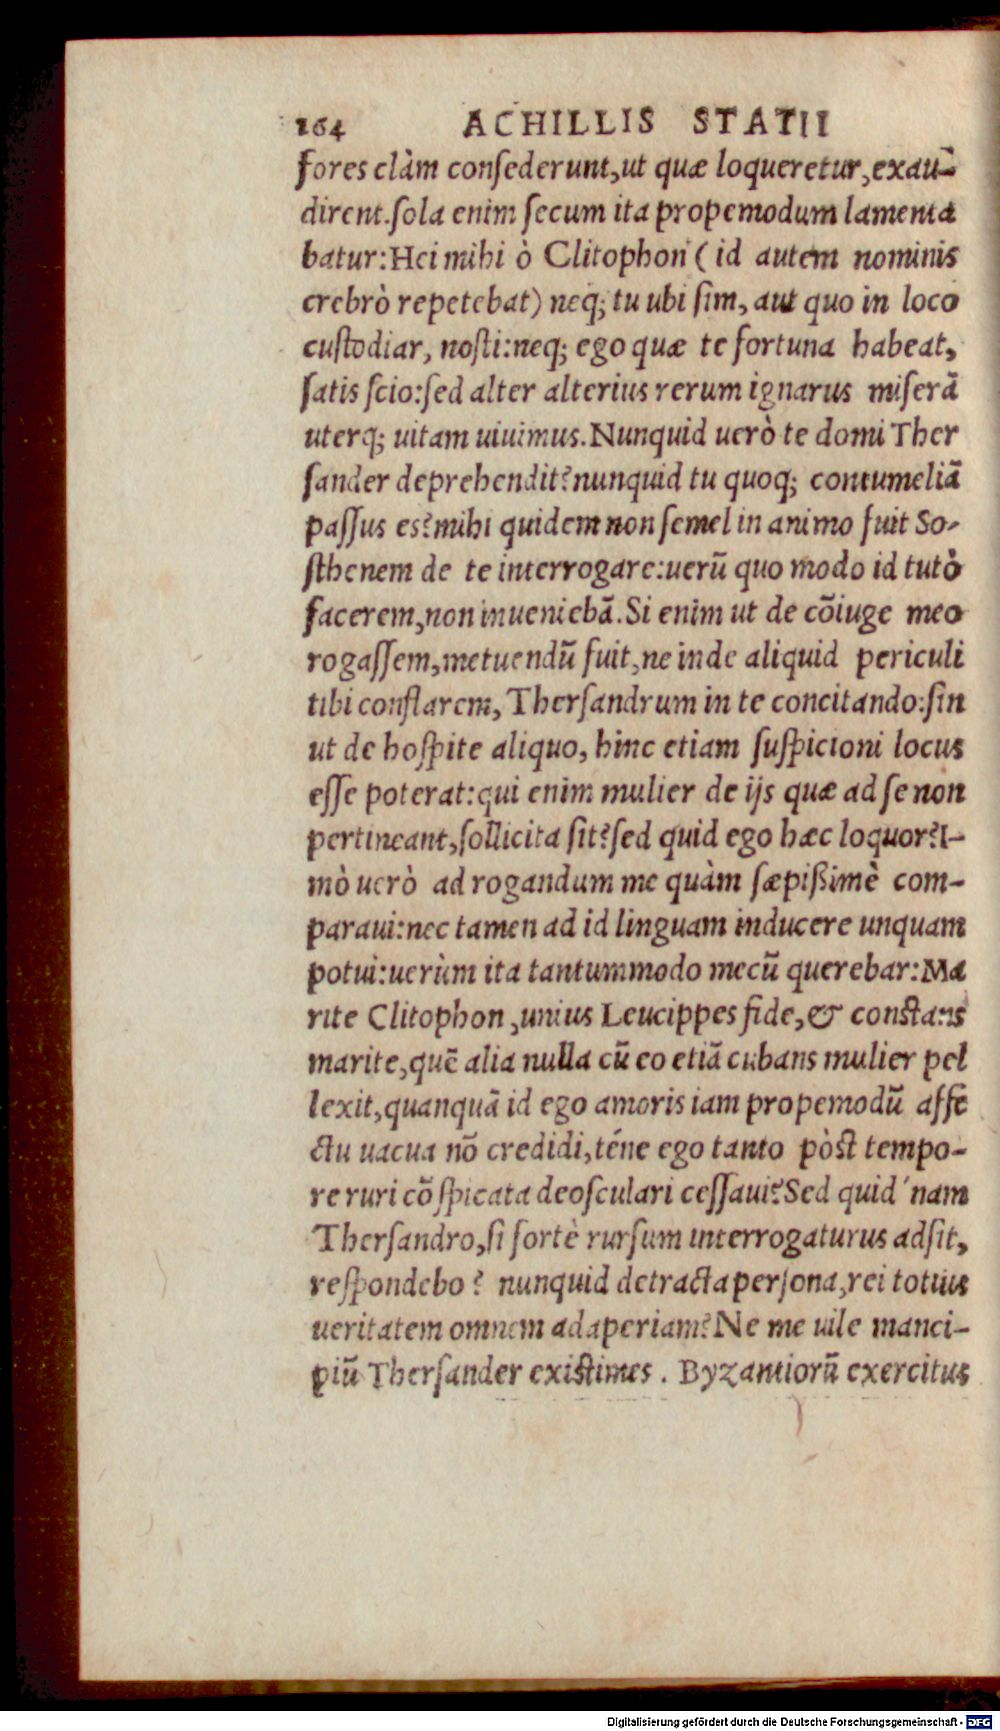 164 ACHILLIS STATII
fores clàm conſederunt,ut quæ loqueretur,exau-
dirent.ſola enim ſecum ita propemodum lamenta
batur:Hei mihi ò Clitophon ( id autem nominis
crebrò repetebat) neq; tu ubi ſim, aut quo in loco
cuſtodiar, noſti:neq; ego quæ te fortuna habeat,
ſatis ſcio:ſed alter alterius rerum ignarus miſerā
uterq; uitam uiuimus.Nunquid uerò te domi Ther
ſander deprehendit?nunquid tu quoq; contumeliā
paſſus es?mihi quidem non ſemel in animo fuit So-
ſthenem de te interrogare:uerū quo modo id tutò
facerem,non inueniebā.Si enim ut de cōiuge meo
rogaſſem,metuendū fuit,ne inde aliquid periculi
tibi conflarem, Therſandrum in te concitando:ſin
ut de hoſpite aliquo, hinc etiam ſuſpicioni locus
eſſe poterat:qui enim mulier de ijs quæ ad ſe non
pertineant,ſollicita ſit?ſed quid ego hæc loquor?I-
mò uerò ad rogandum me quàm ſæpißimè com-
paraui:nec tamen ad id linguam inducere unquam
potui:uerùm ita tantummodo mecū querebar:Ma
rite Clitophon,unius Leucippes fide,& conſtans
marite,quē alia nulla cū eo etiā cubans mulier pel
lexit,quanquā id ego amoris iam propemodū affe
ctu uacua nō credidi,téne ego tanto pòſt tempo-
re ruri cōſpicata deoſculari ceſſaui?Sed quid nam
Therſandro,ſi fortè rurſum interrogaturus adſit,
reſpondebo? nunquid detracta perſona,rei totius
ueritatem omnem adaperiam?Ne me uile manci-
piū Therſander exiſtimes. Byzantiorū exercitus
Digitalisierung gefördert durch die Deutsche Forschungsgemeinschaft - DFG